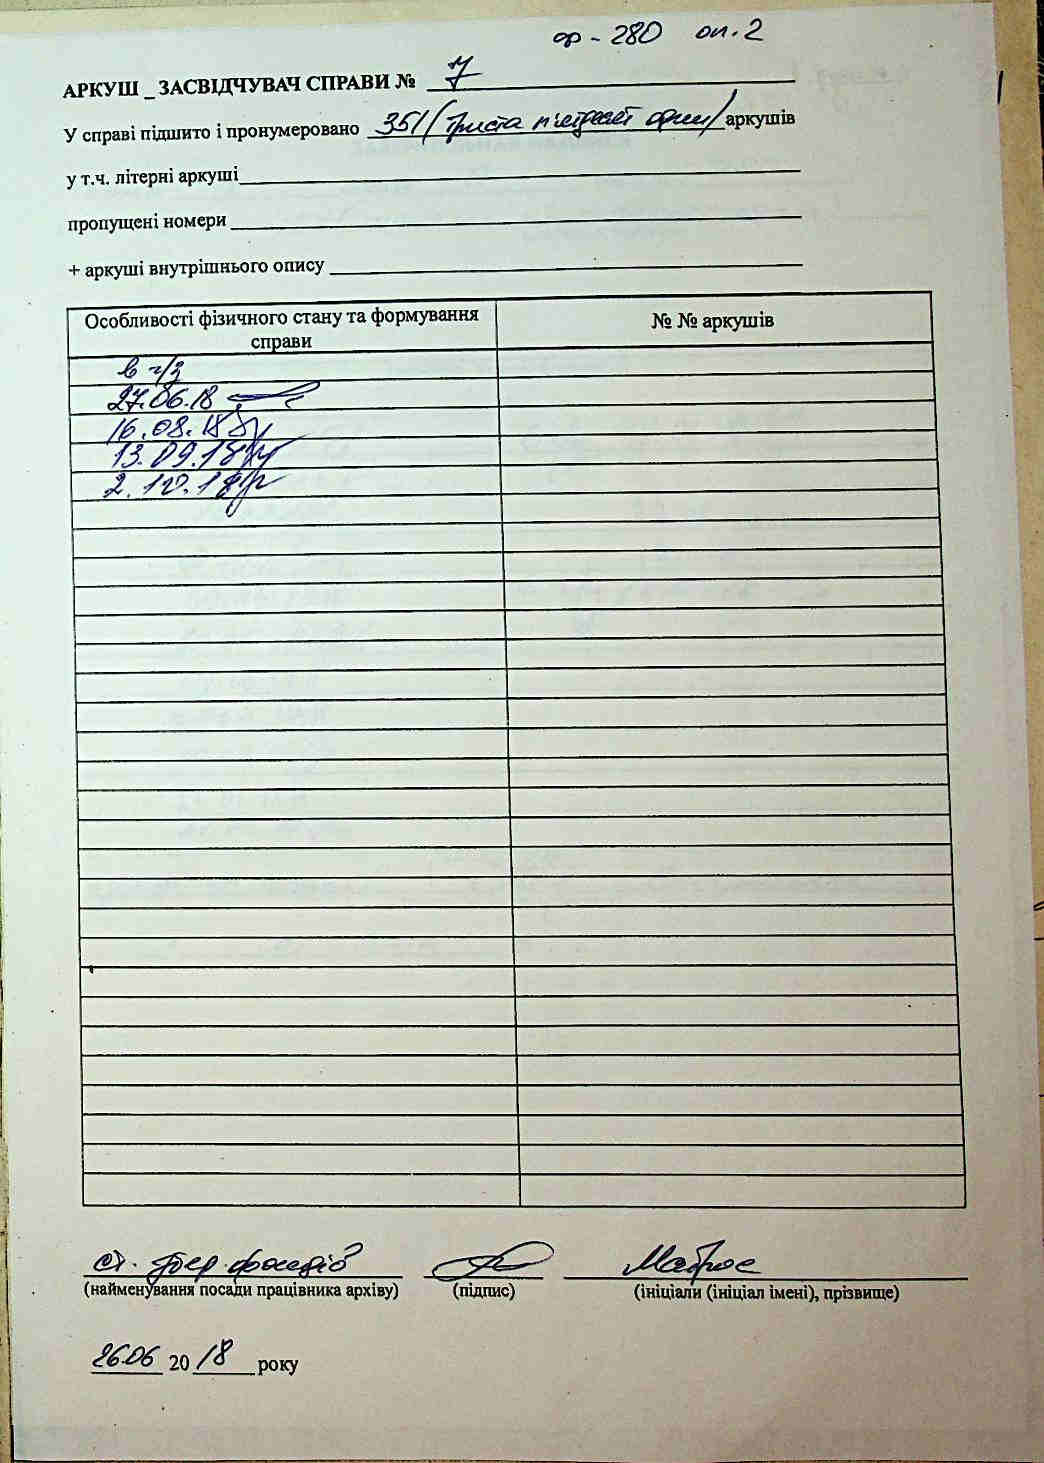 ф-280 оп.2
АРКУШ _ ЗАСВІДЧУВАЧ СПРАВИ № 7
У справі підшито і пронумеровано 351/триста п'ятдесят один/ аркушів
у т.ч. літерні аркуші
пропущені номери
+ аркуші внутрішнього опису
Особливості фізичного стану та формування справи
№ № аркушів
в ч/з
27.06.18
16.08.18
13.09.18
2.10.18
ст. збер. фондів Матрос
(найменування посади працівника архіву) (підпис) (ініціали (ініціал імені), прізвище)
26.06 2018 року